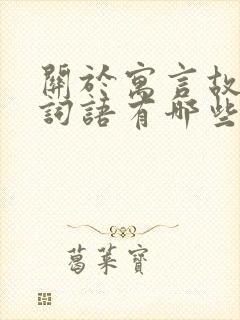 關於寓言故
詞語有哪些
葛萊寶